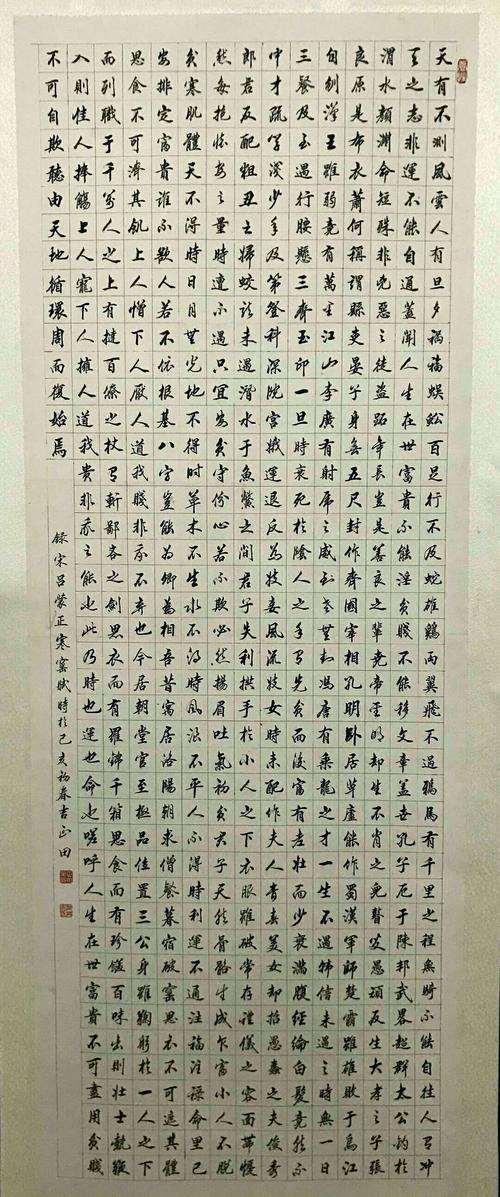 天有不測風雲人有旦夕禍福蜈蚣百足行不及蛇雄鷄兩翼飛不過鴉馬有千里之程無騎不能自往人有冲
天之志非運不能自通蓋聞人生在世富貴不能淫貧賤不能移文章蓋世孔子厄于陳邦武畧超群太公釣於
渭水顏淵命短殊非兇惡之徒盜跖年長豈是善良之輩堯帝聖明却生不肖之兒瞽叟愚頑反生大孝之子張
良原是布衣蕭何稱謂縣吏晏子身無五尺封作齊國宰相孔明臥居草廬能作蜀漢軍師楚霸雖雄敗于烏江
自刎漢王雖弱竟有萬里江山李廣有射虎之威到老無封馮唐有乘龍之才一生不遇韓信未遇之時無一日
三餐及至遇行腰懸三齊玉印一旦時衰死於陰人之手有先貧而後富有老壯而少衰滿腹經綸白髮竟然不
中才疏學淺少年及第登科深院宮娥運退反為妓妾風流妓女時未配作夫人青春美女却招愚蠢之夫俊秀
郎君反配粗丑之婦蛟龍未遇潛水于魚鱉之間君子失利拱手於小人之下衣服雖破常存禮儀之容面帶憂
然每抱懷安之量時遭不遇只宜安貧守份心若不欺必然揚眉吐氣初貧君子天然骨骼才成乍富小人不脱
貧寒肌體天不得時日月無光地不得時草木不生水不得時風浪不平人不得時利運不通注福注禄命里已
安排定富貴誰不欲人若不依根基八字豈能為卿為相吾昔寓居洛陽朝求僧餐暮宿破窰思衣不可遮其體
思食不可濟其飢上人憎下人厭人道我賤非我不弃也今居朝堂官至極品位置三公身雖鞠躬於一人之下
而列職于千萬人之上有撻百僚之杖有斬鄙吝之劍思衣而有羅錦千箱思食而有珍饈百味出則壯士執鞭
入則佳人捧觴上人寵下人擁人道我貴非我之能也此乃時也運也命也嗟呼人生在世富貴不可盡用貧賤
不可自欺聽由天地循環周而復始焉
錄宋呂蒙正寒窰賦時於己亥初春吉正田